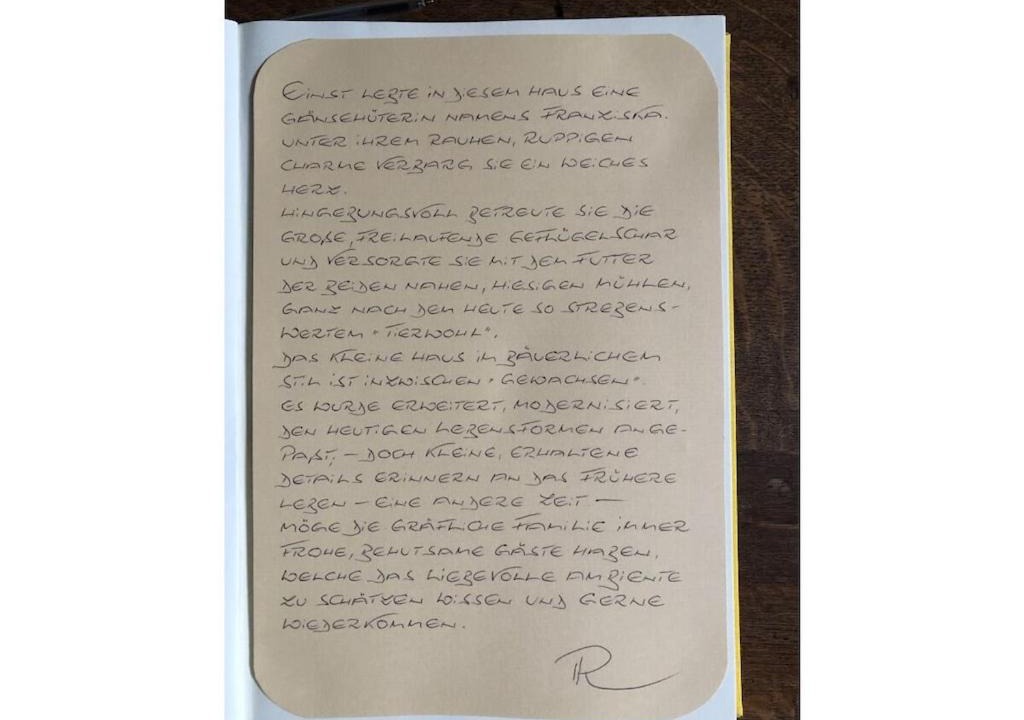 EINST LEBTE IN DIESEM HAUS EINE
GÄNSEHÜTERIN NAMENS FRANZISKA.
UNTER IHREM RAUHEN, RUPPIGEN
CHARME VERBARG SIE EIN WEICHES
HERZ.
HINGEBUNGSVOLL BETREUTE SIE DIE
GROßE, FREILAUFENDE GEFLÜGELSCHAR
UND VERSORGTE SIE MIT DEM FUTTER
DER BEIDEN NAHEN, HIESIGEN MÜHLEN,
GANZ NACH DEM HEUTE SO STREBENS-
WERTEM "TIERWOHL".
DAS KLEINE HAUS IM BÄUERLICHEM
STIL IST INZWISCHEN "GEWACHSEN".
ES WURDE ERWEITERT, MODERNISIERT,
DEN HEUTIGEN LEBENSFORMEN ANGE-
PAßT, – DOCH KLEINE, ERHALTENE
DETAILS ERINNERN AN DAS FRÜHERE
LEBEN – EINE ANDERE ZEIT –
MÖGE DIE GRÄFLICHE FAMILIE IMMER
FROHE, BEHUTSAME GÄSTE HABEN,
WELCHE DAS LIEBEVOLLE AMBIENTE
ZU SCHÄTZEN WISSEN UND GERNE
WIEDERKOMMEN.
R